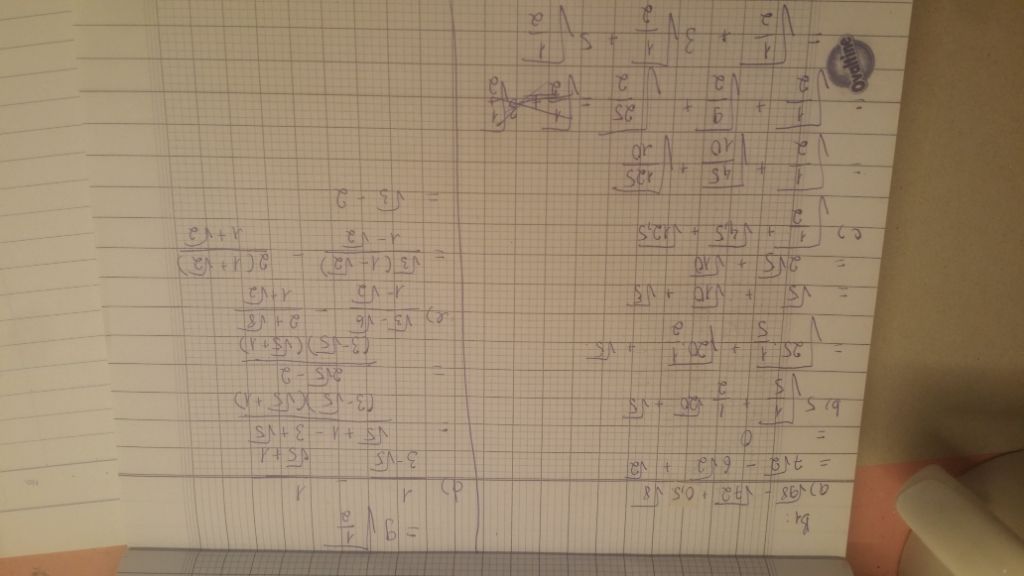 B4:
a) √98 - √72 + 0,5 √8
= 7√2 - 6√2 + √2
= 0
b) 5√(1/5) + 1/2 √20 + √5
= √(25·1/5) + √(20·1/2) + √5
= √5 + √10 + √5
= 2√5 + √10
c) √(1/2) + √4,5 + √12,5
= √(1/2) + √(45/10) + √(125/10)
= √(1/2) + √(9/2) + √(25/2) =
= √(1/2) + 3√(1/2) + 5√(1/2)
ovaltine
= 9√(1/2)
d) 1/(3-√5) - 1/(√5+1)
= (√5+1-3+√5)/((3-√5)(√5+1))
= (2√5-2)/((3-√5)(√5+1))
e) (√3-√6)/(1-√2) - (2+√8)/(1+√2)
= √3(1-√2)/(1-√2) - 2(1+√2)/(1+√2)
= √3 - 2